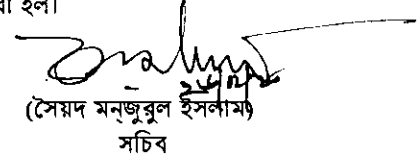 হল।
(সৈয়দ মন্জুরুল ইসলাম)
সচিব